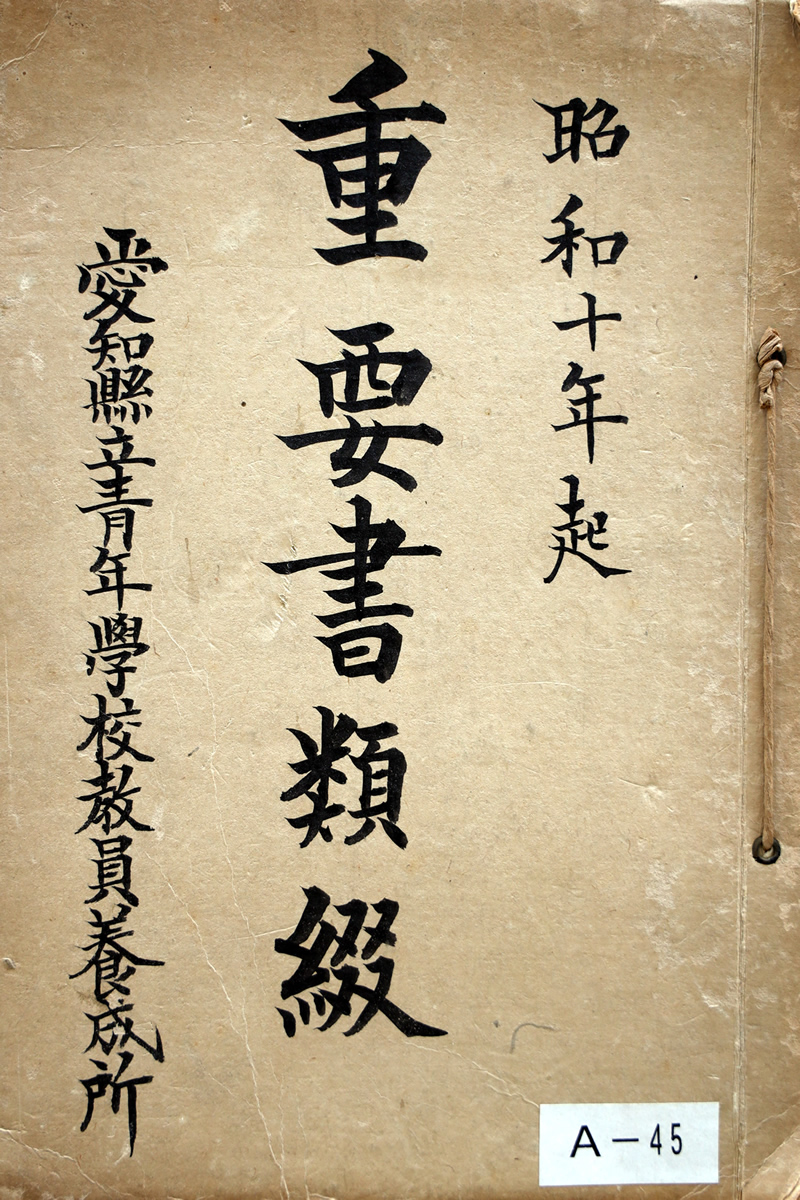 昭和十年起
重要書類綴
愛知縣立青年學校教員養成所
A-45